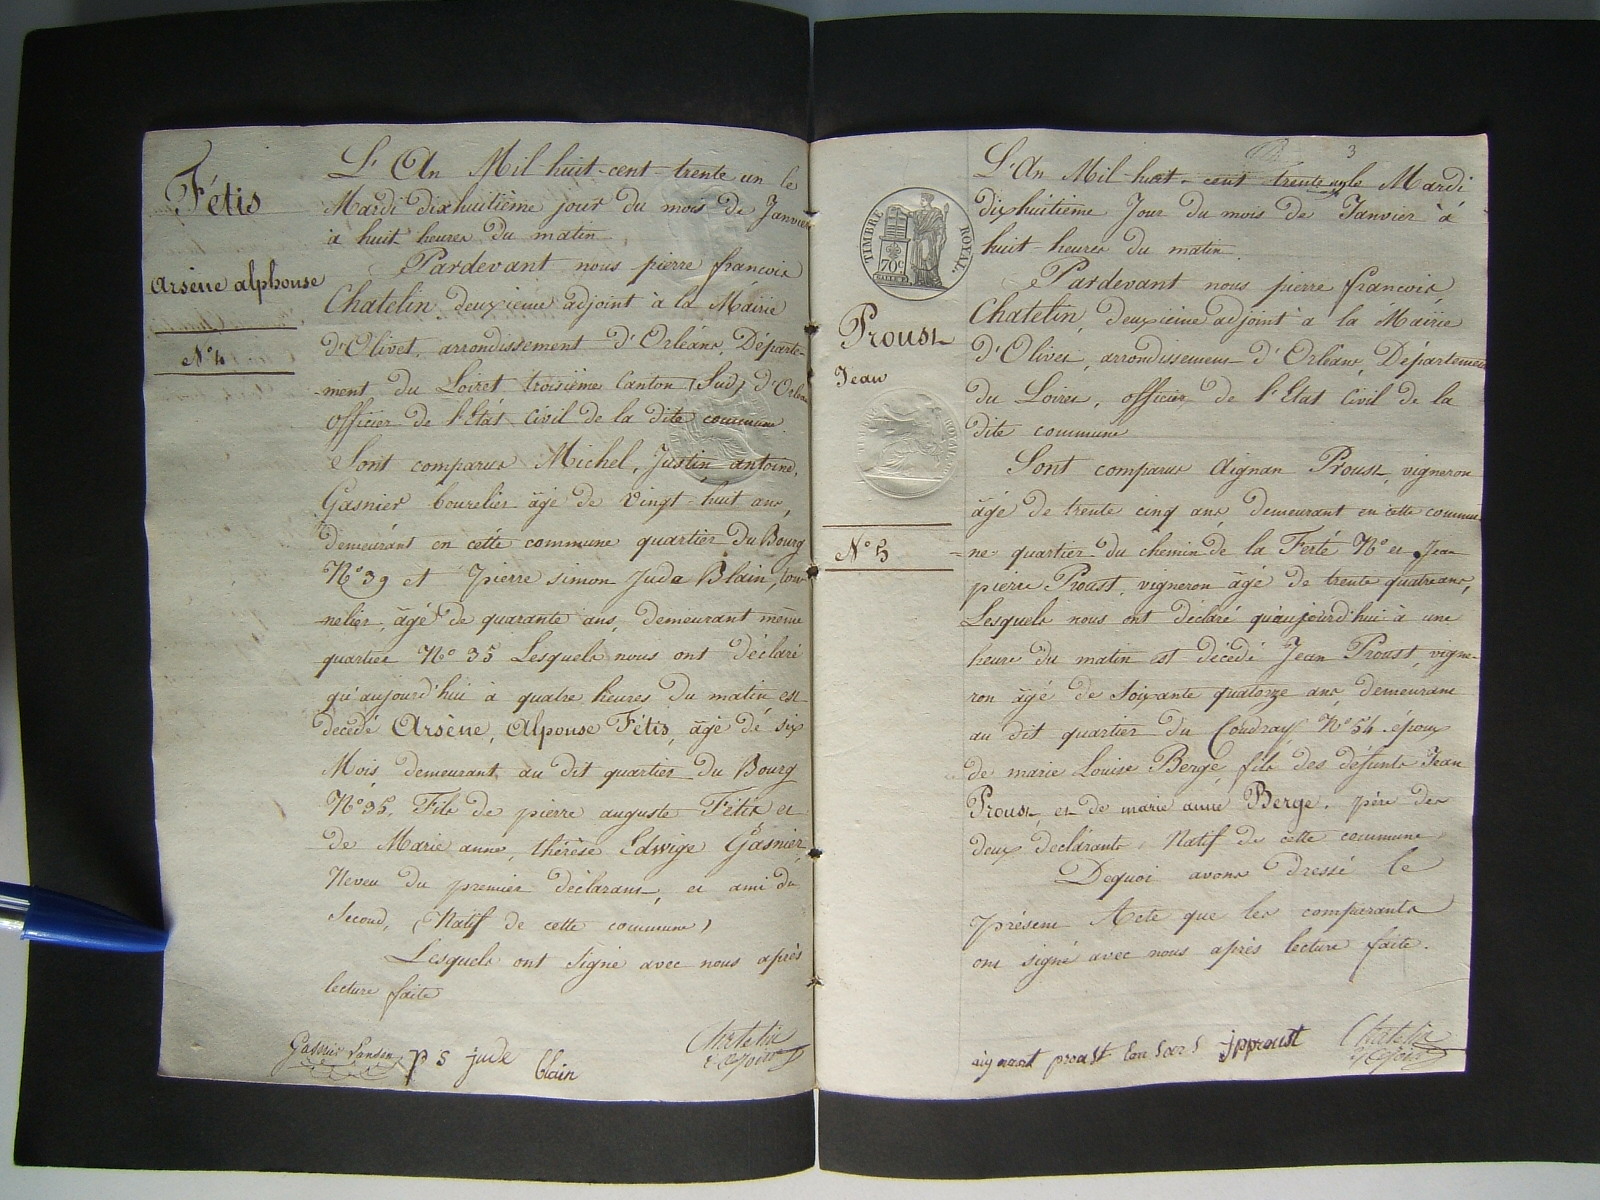 Fétis
Arsène alphonse
N° 4
L'An Mil huit-cent-trente un le
Mardi dixhuitième jour du mois de Janvier
à huit heures du matin
Pardevant nous pierre françois
Chatelin, deuxième adjoint à la Mairie
d'Olivet, arrondissement d'Orléans, Départe-
-ment du Loiret troisième Canton (Sud) d'Orléans
officier de l'Etat Civil de la dite commune.
Sont comparus Michel, Justin antoine,
Gasnier bourelier âgé de vingt-huit ans,
demeurant en cette commune quartier du Bourg
N° 39 et pierre simon Juda Blain, ton-
-nelier, âgé de quarante ans, demeurant même
quartier N° 35 Lesquels nous ont déclaré
qu'aujourd'hui à quatre heures du matin est
decédé Arsène, Alpouse Fétis, âgé de six
Mois demeurant au dit quartier du Bourg
N° 35, Fils de pierre auguste Fétis et
de Marie anne, thérèse Edwige Gasnier,
Neveu du premier déclarant, et ami du
Second, (Natif de cette commune)
Lesquels ont signé avec nous après
lecture faite
Gasnier p s jude blain Chatelin
adjoint
3
L'An Mil-huit-cent trente un le Mardi
dixhuitième Jour du mois de Janvier à
huit-heures du matin.
TIMBRE ROYAL.
70c
Pardevant nous pierre françois
Chatelin, deuxième adjoint à la Mairie
Proust
Jean
N° 5
d'Olivet, arrondissement d'Orléans, Département
du Loiret, officier de l'Etat Civil de la
dite commune
Sont comparus Aignan Proust, vigneron
âgé de trente cinq ans demeurant en cette commu
-ne quartier du chemin de la Ferté N° et Jean
pierre Proust, vigneron âgé de trente quatre ans,
Lesquels nous ont déclaré qu'aujourd'hui à une
heure du matin est décédé Jean Proust, vigne-
ron âgé de soixante quatorze ans demeurant
au dit quartier du Coudray N° 54 époux
de marie Louise Bergé, fils des défunts Jean
Proust, et de marie anne Berge, père des
deux déclarants, Natif de cette commune
Dequoi avons dressé le
présent Acte que les comparants
ont signé avec nous après lecture faite.
proust jpproust Chatelin
adjoint